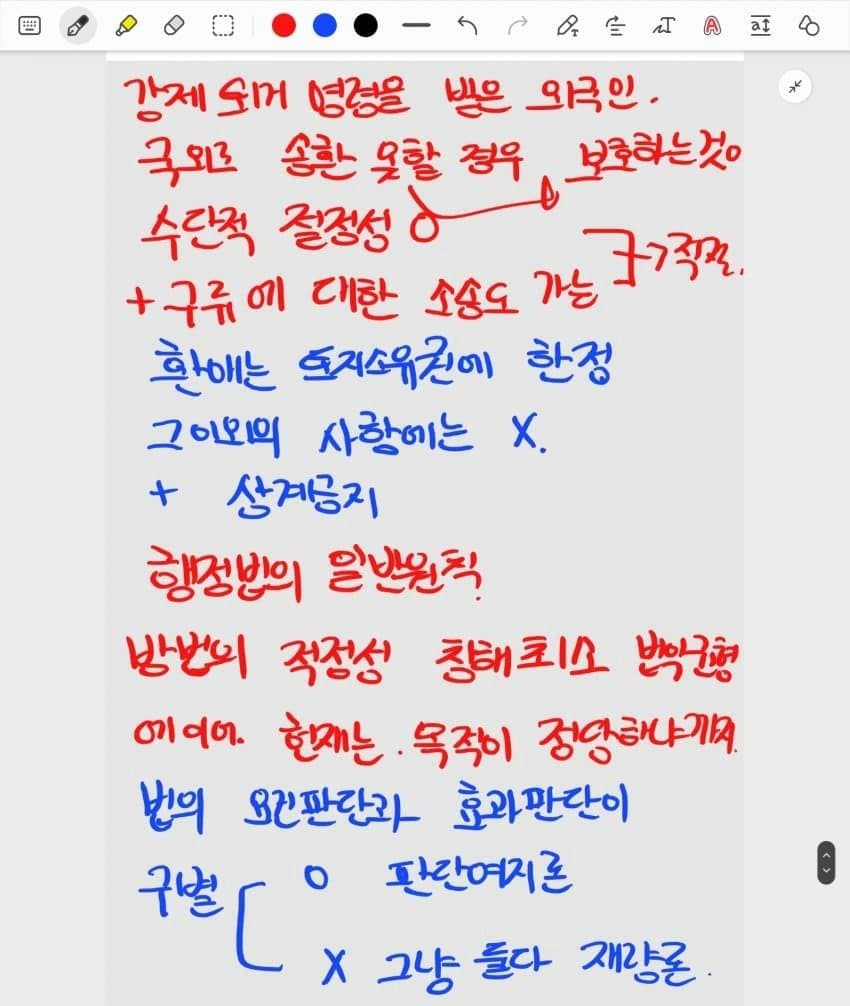 강제 퇴거 명령을 받은 외국인.
국외로 송환 못할 경우 보호하는것이
수단적 적정성 O
+ 구류에 대한 소송도 가능 → 적절.
환매는 토지소유권에 한정
그 이외의 사항에는 X.
+ 상계금지
행정법의 일반원칙.
방법의 적정성 침해최소 법익균형
에 이어. 헌재는. 목적이 정당하냐까지.
법의 요건판단과 효과판단이
구별 O 판단여지론
X 그냥 둘다 재량론.